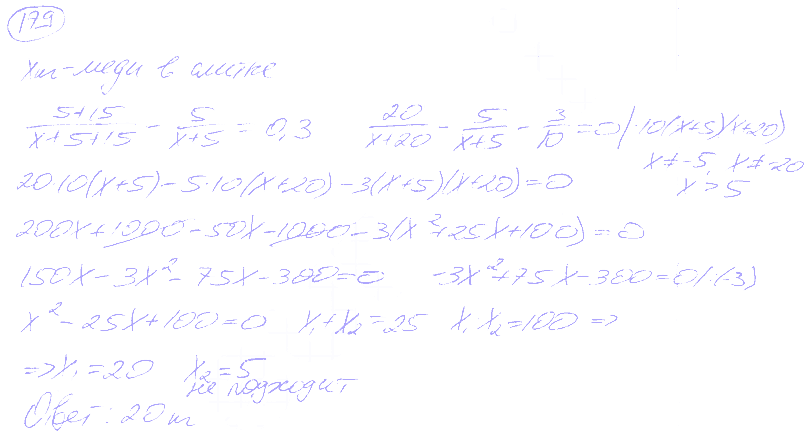 179
xт - меди в слитке
(5+15)/(x+5+15) - 5/(x+5) = 0,3   20/(x+20) - 5/(x+5) - 3/10 = 0 | ·10(x+5)(x+20)
x≠-5, x≠-20
x>5
20·10(x+5) - 5·10(x+20) - 3(x+5)(x+20) = 0
200x + 1000 - 50x - 1000 - 3(x²+25x+100) = 0
150x - 3x² - 75x - 300 = 0   -3x² + 75x - 300 = 0 | :(-3)
x² - 25x + 100 = 0   x₁+x₂ = 25   x₁x₂ = 100 =>
=> x₁ = 20   x₂ = 5
не подходит
Ответ: 20 т